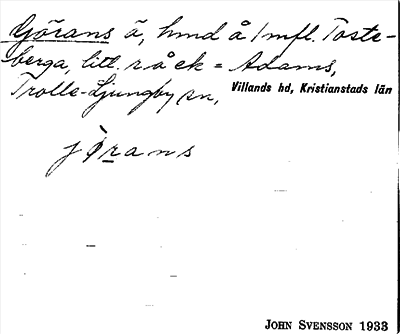 Görans å, hmd å/mfl. Toste-
berga, litt. r å ck = Adams,
Trolle-Ljungby sn, Villands hd, Kristianstads län
jòrans
JOHN SVENSSON 1933